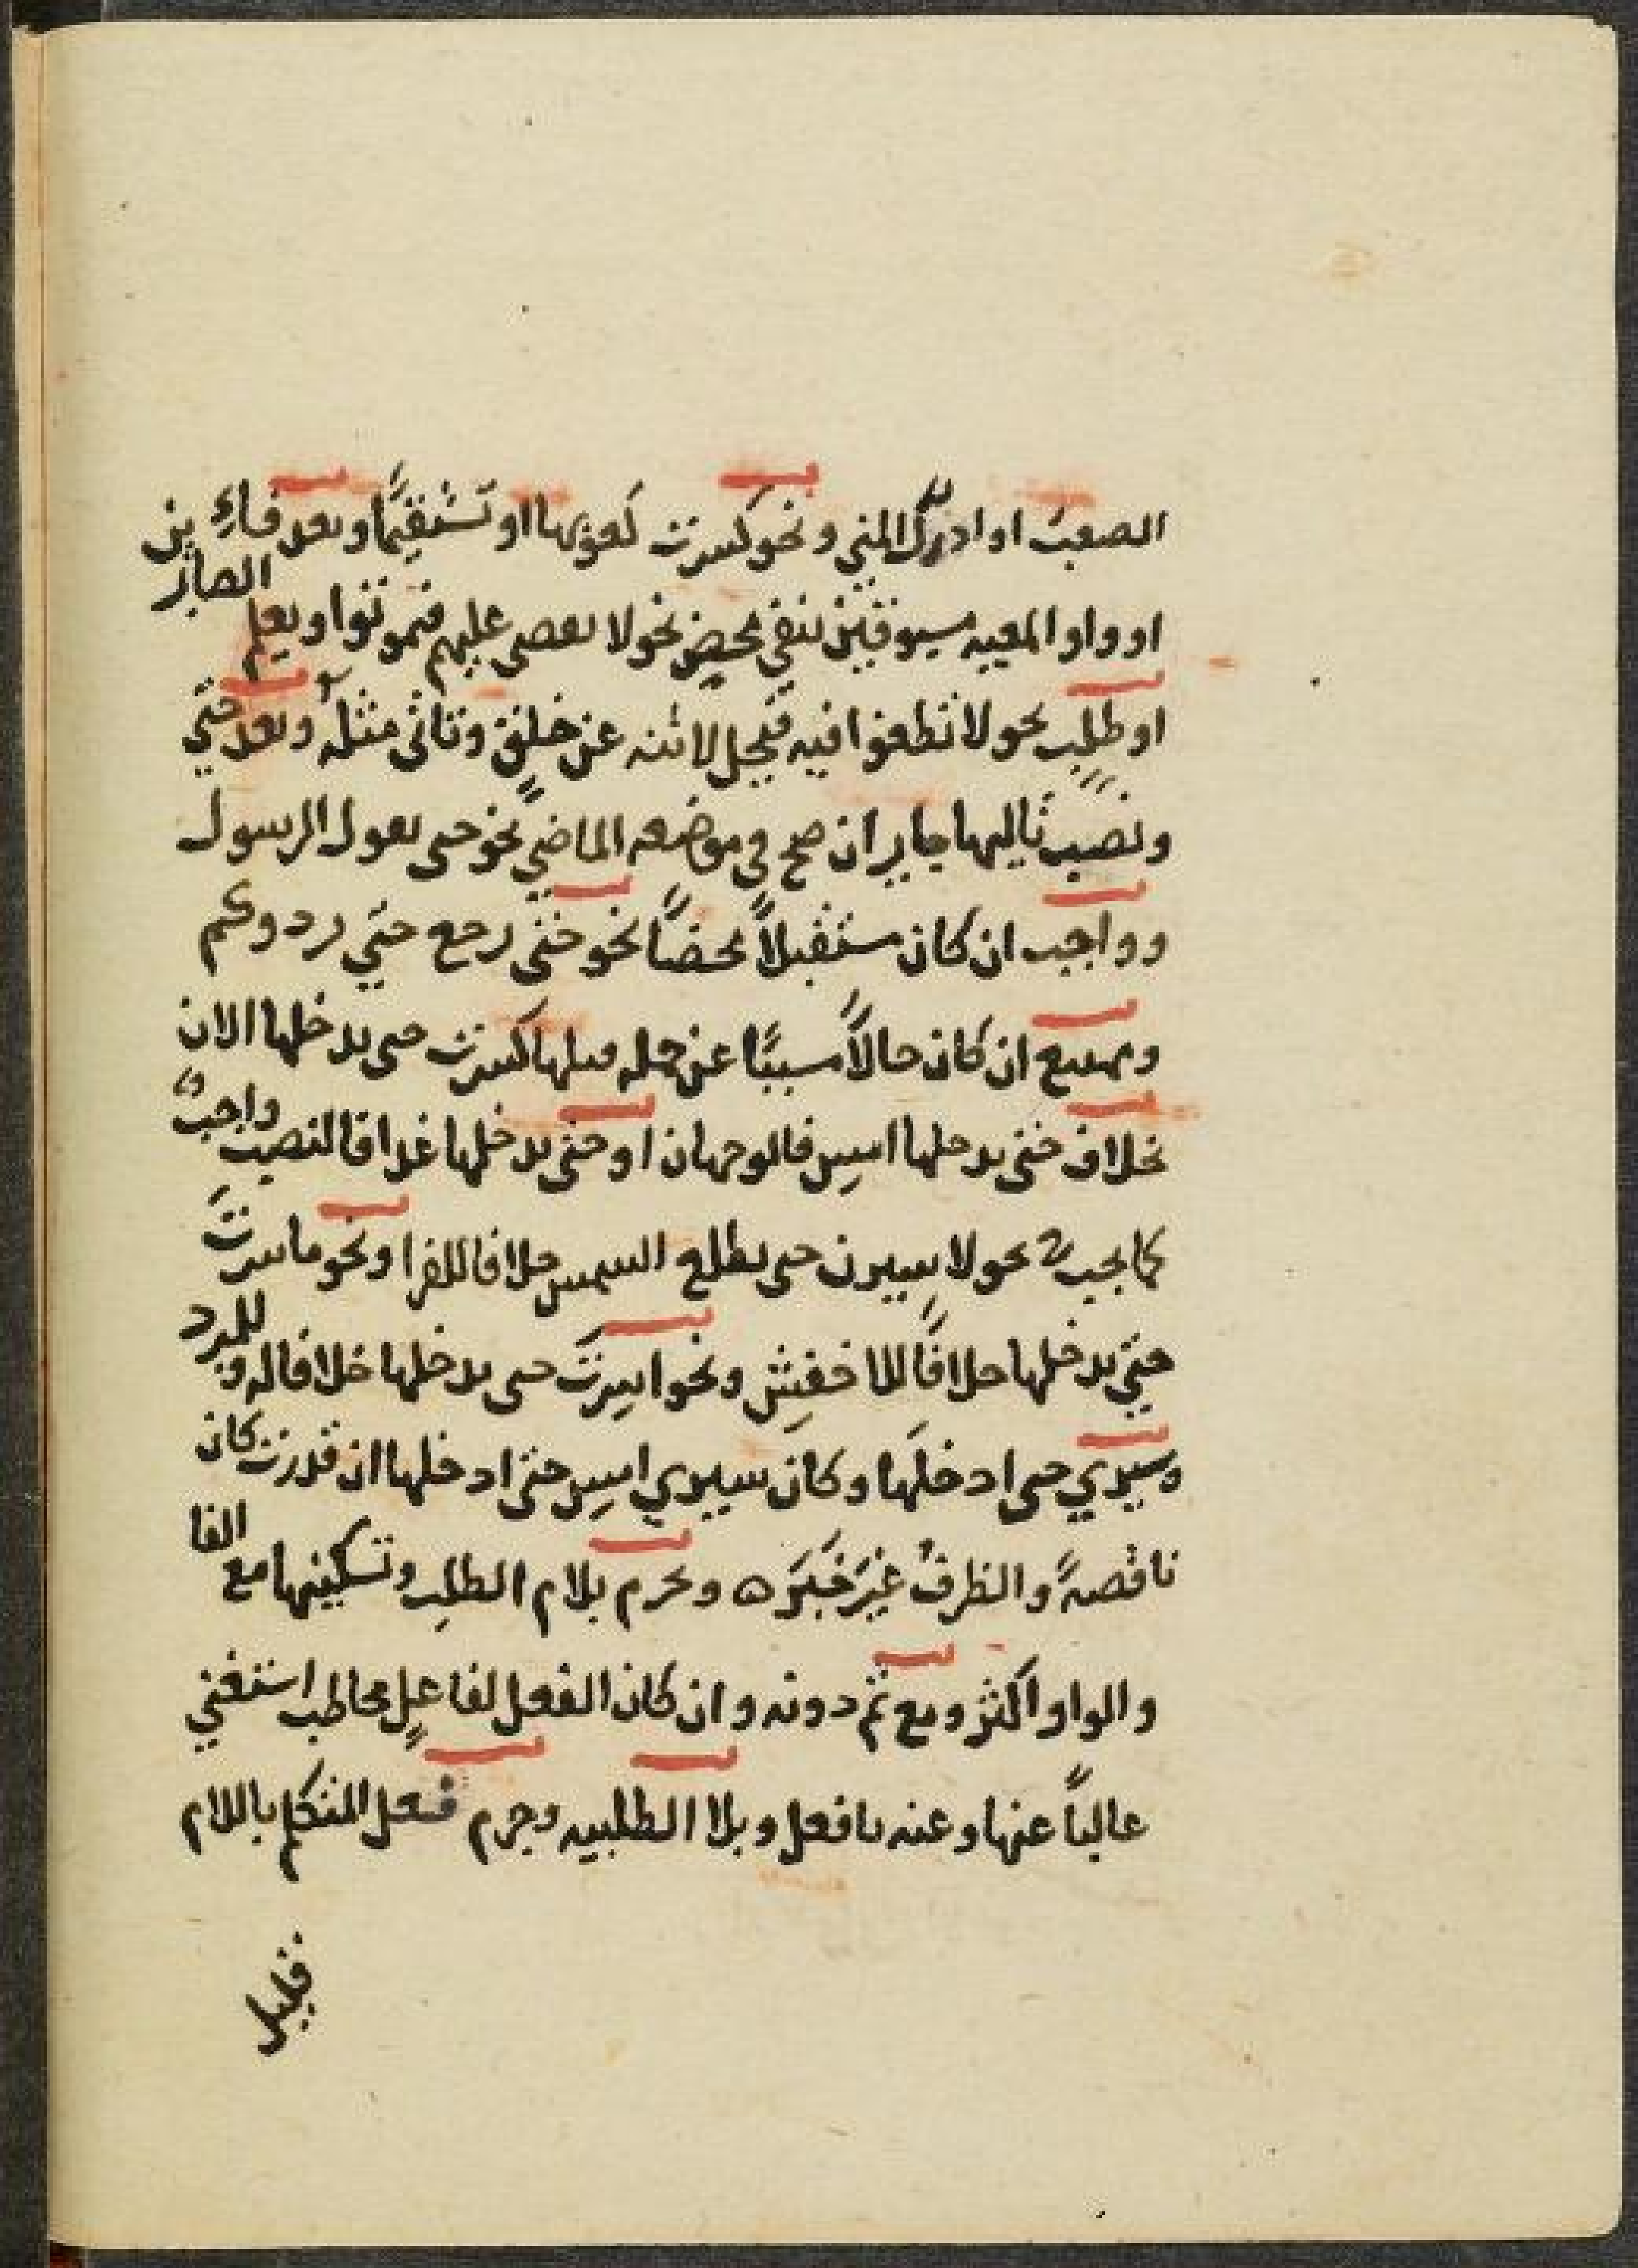 الصعبَ او ادركَ المني ونحو كسرت كعوبها او تستقيمًا وبعد فاءٍ ين
او واو المعيه مسبوقين بنفي محضٍ نحو لا يقضى عليهم فيموتوا ويعلم الصابر
او طلبٍ نحو لا تطغوا فيه فيحل لا تنه عن خلقٍ وتاتى مثله وبعد حتي
ونصب تاليها جايز ان صح في موضعه الماضي نحو حتى يقول الرسول
وواجب ان كان مستقبلاً محضًا نحو حتى يرجع حتي يردوكم
ويمتنع ان كان حالاً مسببًا عن جمله قبلها كسرت حتى يدخلها الان
بخلاف حتى يدخلها امس فالوجهان او حتى يدخلها غدا فالنصب واجبٌ
كما يجب نحو لاسيرن حتى تطلع الشمس خلافا للفرا ونحو ما سرتَ
حتي يدخلها خلافًا للاخفش ونحو اسرتَ حتى يدخلها خلافا له وللمبرد
وسيري حتى ادخلَها وكان سيري امسِ حتى ادخلها ان قدرت كان
ناقصةً والظرفُ غيرَ خبَرٍ ه ويجزم بلام الطلب وتسكينها مع الفا
والواو اكثر ومع ثم دونه وان كان الفعل لفاعلٍ مخاطب استغني
غالبًا عنها وعنه بافعل وبلا الطلبيه وجزم فعل المتكلم باللام
قليل